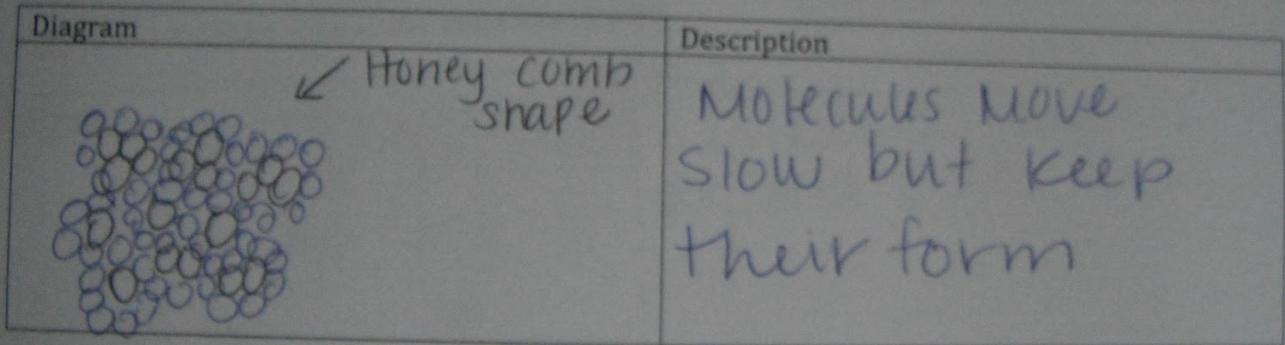 Diagram
Description
Honey comb
shape
Molecules Move
Slow but keep
their form